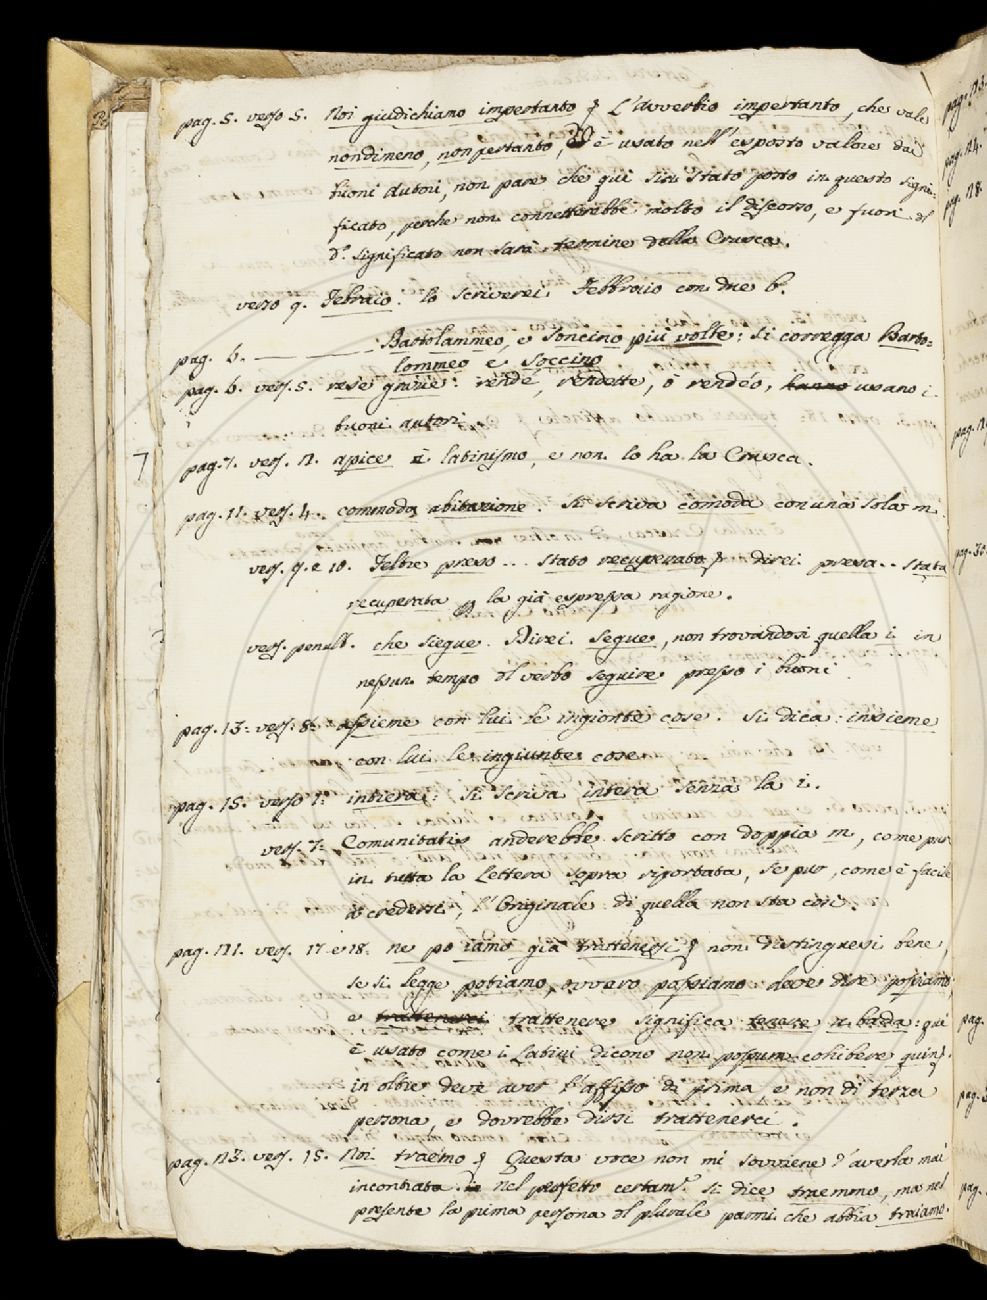 pag. 5. verso 5. Noi giudichiamo impertanto § L'avverbio impertanto, che vale
nondimeno, non pertanto, è usato nell'esposto valore dai
buoni Autori, non pare che quì sia stato posto in questo signi-
ficato, perche non connetterebbe molto il discorso, e fuori del
dº. significato non sarà termine della Crusca.
verso 9. Febraio: lo scriverei Febbraio con due b.
pag. 6. Bartolammeo, e Soncino più volte: si corregga Barto-
lommeo e Soccino
pag. 6. vers. 5. rese grazie: rendè, rendette, ò rendéo, hanno usano i
buoni autori.
pag. 7. vers. 12. apice è latinismo, e non lo ha la Crusca.
pag. 11. vers. 4. commoda abitazione. Si scriva comoda con una sola m.
vers. 9. e 10. Feltre preso... stato recuperato § direi presa.. stata
recuperata per la già espressa ragione.
vers. penult. che siegue. Direi segue, non trovandosi quella i in
nessun tempo del verbo seguire presso i buoni.
pag. 13. vers. 8: assieme con lui le ingionte cose. Si dica: insieme
con lui le ingiunte cose.
pag. 15. verso 1: intiera: Si scriva intera senza la i.
vers. 7: Comunitatis anderebbe scritto con doppia m, come pur
in tutta la Lettera sopra riportata, se pur, come è facile
à credersi, l'Originale di quella non sta così.
pag. 21. vers. 17. e 18: ne po iamo già trattenersi § non distinguesi bene,
se si legge potiamo, ovvero possiamo: deve dire possiamo,
e trattenerci trattenere significa tenere a bada: quì
è usato come i Latini dicono non possum cohibere quin.
in oltre deve aver l'affisso di prima e non di terza
persona, e dovrebbe dirsi trattenerci.
pag. 23. vers. 15. Noi traemo § Questa voce non mi sovviene d'averla mai
incontrata nel perfetto certam.e si dice traemmo, ma nel
presente la prima persona del plurale parmi che abbia traiamo.
pag. 23.
pag. 24.
pag. 28.
pag. 30
pag.
pag. 3
pag.